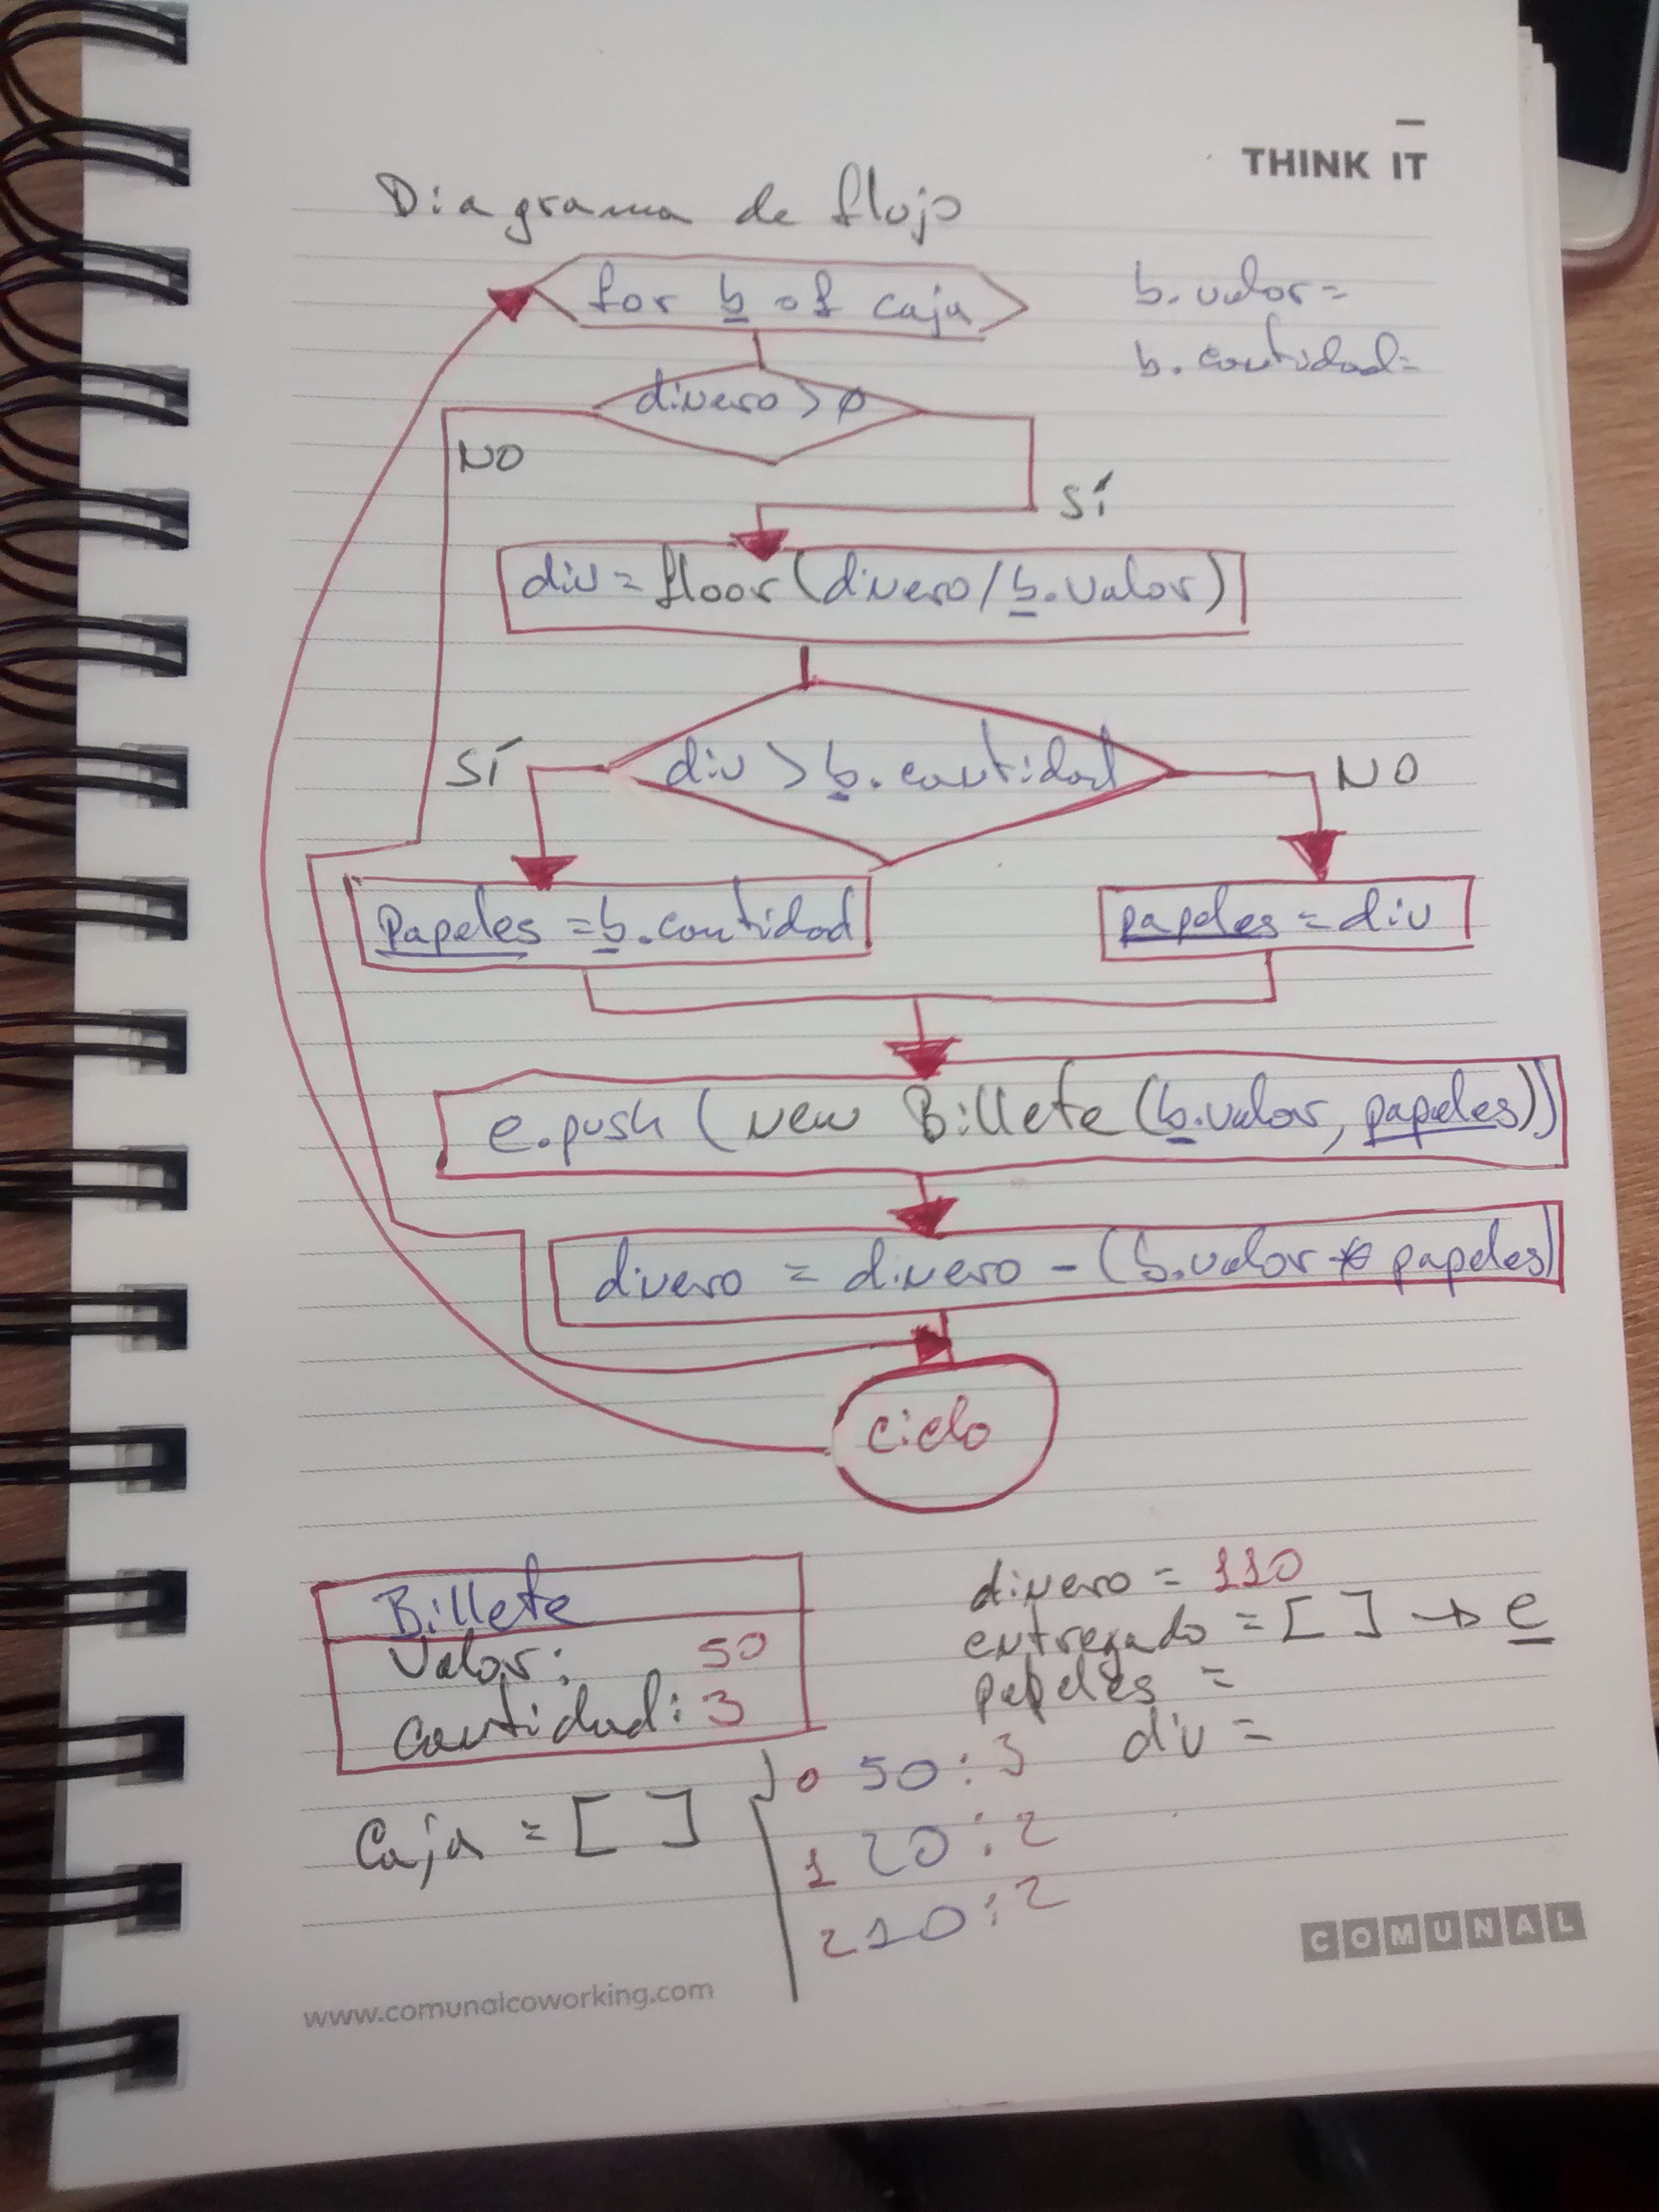 THINK IT
Diagrama de flujo
for b of caja
b.valor=
b.cantidad=
dinero > ø
NO
SÍ
div = floor(dinero/b.valor)
SÍ
div > b.cantidad
NO
Papeles = b.cantidad
papeles = div
e.push (new Billete (b.valor, papeles))
dinero = dinero - (b.valor * papeles)
ciclo
Billete
Valor: 50
cantidad: 3
dinero = 110
entregado = [ ] → e
papeles =
div =
Caja = [ ]
0 50 : 3
1 20 : 2
2 10 : 2
COMUNAL
www.comunalcoworking.com